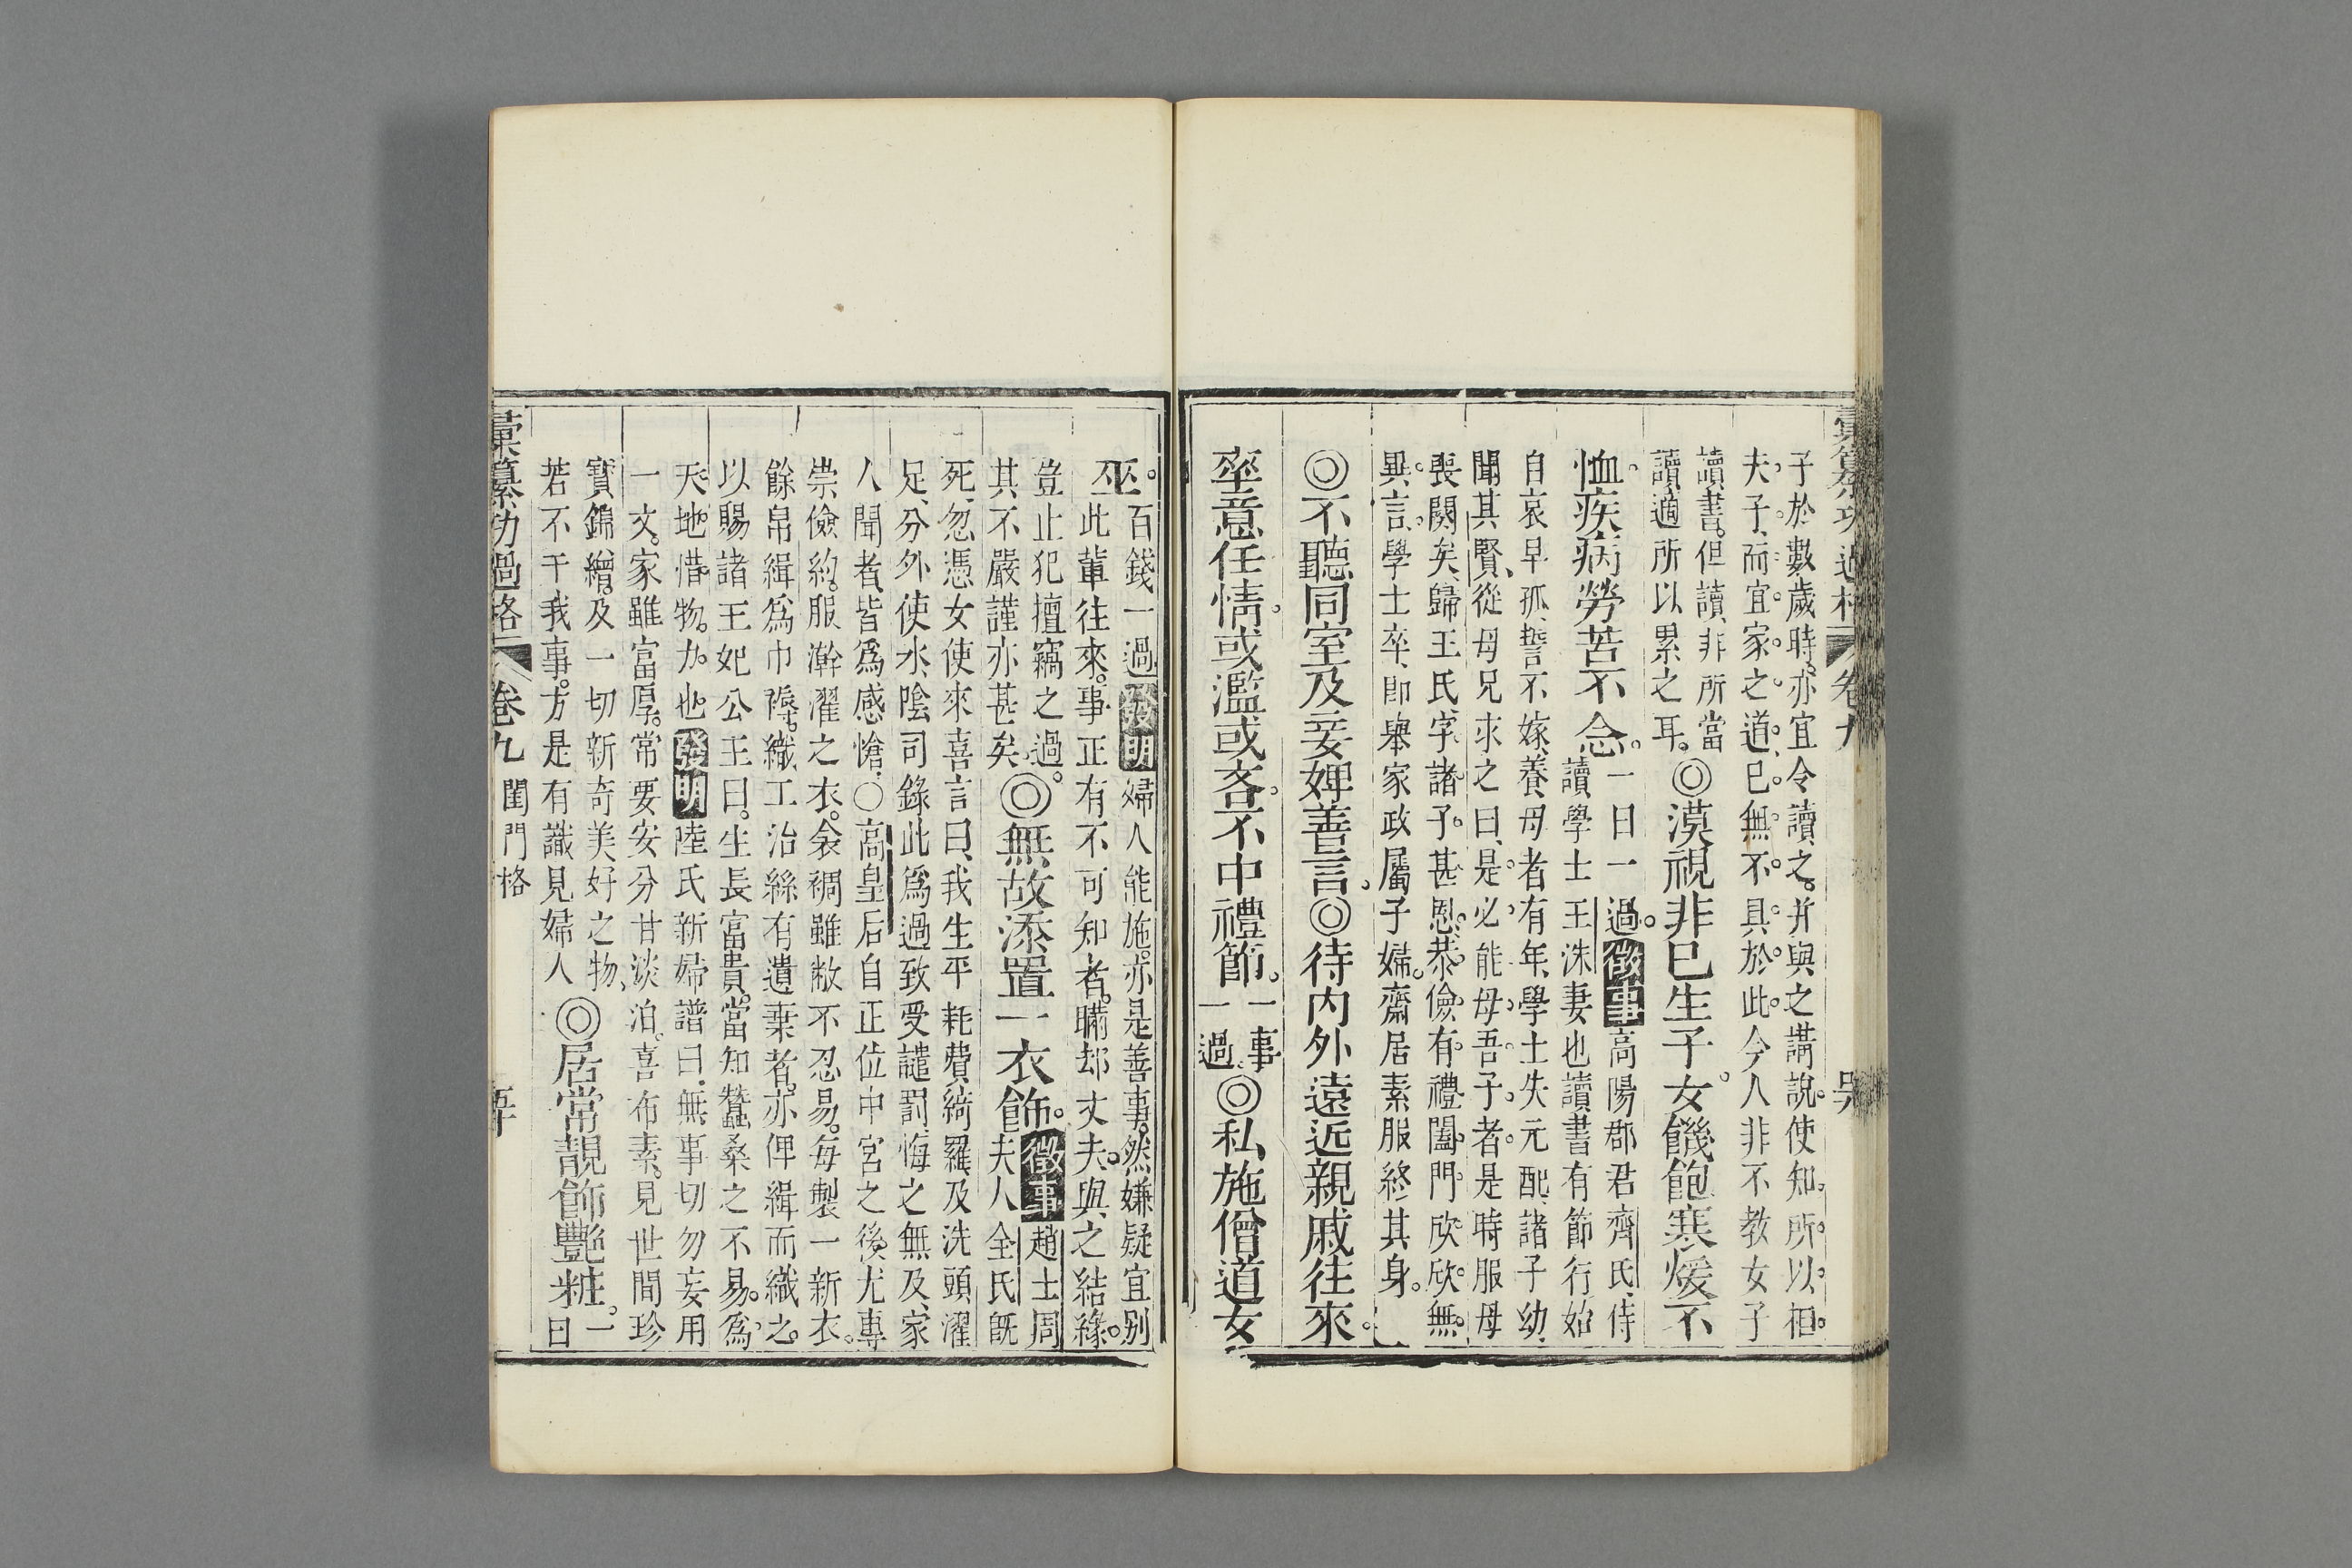 彙纂功過格 卷九
子於數歲時、亦宜令讀之。并與之講說。使知所以相
夫子、而宜家之道、已無不具於此。今人非不教女子
讀書。但讀非所當
讀適所以累之耳。◎漠視非已生子女饑飽寒煖不
恤疾病勞苦不念。一日一過。徵事高陽郡君齊氏、侍
讀學士王洙妻也讀書有節行始
自哀早孤、誓不嫁、養母者有年、學士失元配、諸子幼、
聞其賢、從母兄求之曰、是必能母吾子者是時服母
喪闋矣、歸王氏、字諸子。甚恩恭儉有禮闔門欣欣無
異言學士卒、即舉家政屬子婦。齋居素服終其身。
◎不聽同室及妾婢善言。◎待内外遠近親戚往來。
率意任情。或濫或吝。不中禮節。一事一過。◎私施僧道女
巫。百錢一過發明婦人能施。亦是善事。然嫌疑宜别
此輩往來。事正有不可知者。瞞却丈夫。與之結緣。
豈止犯擅竊之過。
其不嚴謹亦甚矣◎無故添置一衣飾。徵事趙士周
夫人全氏既
死、忽憑女使來喜言曰、我生平耗費綺羅及洗頭濯
足、分外使水、陰司錄此爲過致受譴罰、悔之無及、家
人聞者、皆爲感愴、○高皇后自正位中宮之後、尤專
崇儉約。服澣濯之衣。衾裯雖敝不忍易。每製一新衣。
餘帛緝爲巾褥。織工治絲有遺棄者。亦俾緝而織之。
以賜諸王妃公主曰。生長富貴。當知蠶桑之不易。爲
天地惜物力也發明陸氏新婦譜曰、無事切勿妄用
一文。家雖富厚。常要安分甘淡泊。喜布素。見世間珍
寶錦繒。及一切新奇美好之物、
若不干我事。方是有識見婦人◎居常靚飾艷粧。一日
彙纂功過格 卷九 閨門格